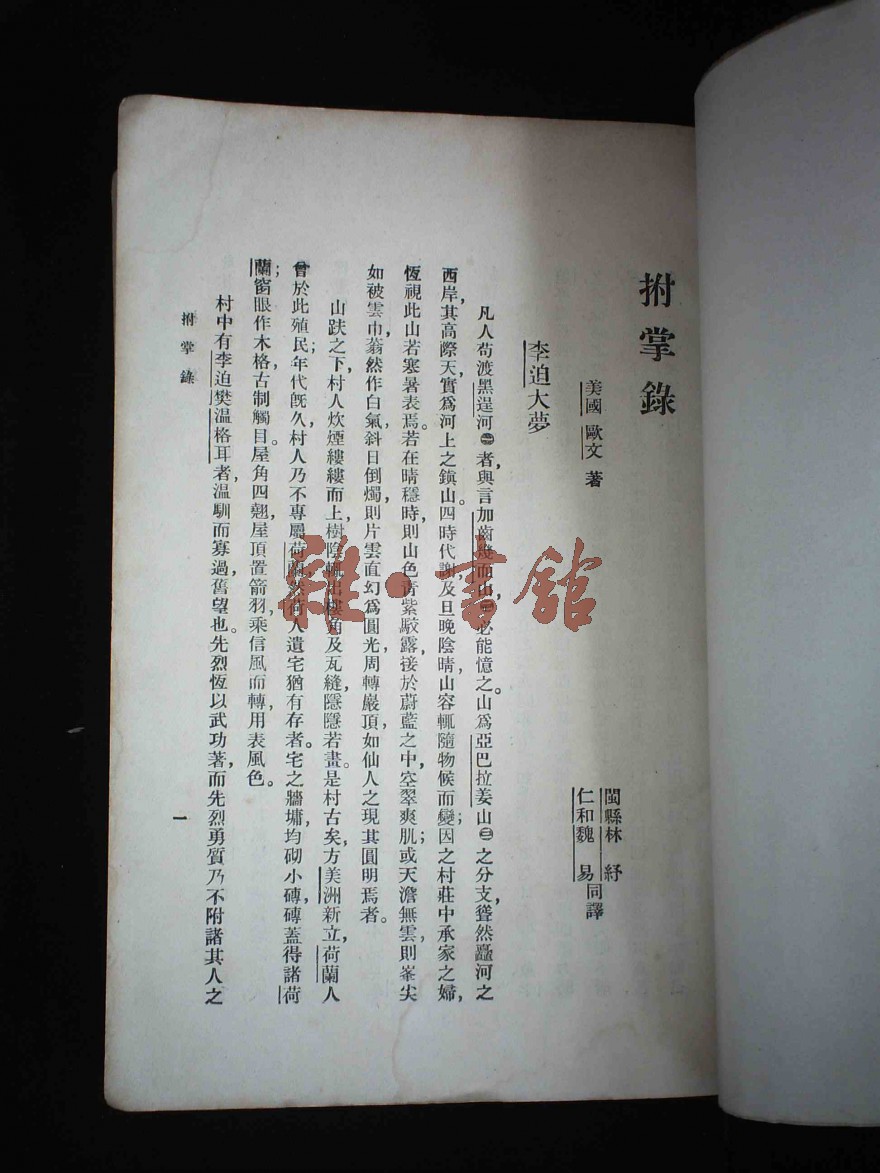 拊掌錄
美國 歐文 著
閩縣林 紓
仁和魏 易同譯
李迫大夢
凡人苟渡黑逞河㊀者，與言加齒幾而山㊁必能憶之。山爲亞巴拉姜山㊂之分支，聳然矗河之
西岸，其高際天，實爲河上之鎭山。四時代謝，及旦晚陰晴，山容輒隨物候而變；因之村莊中承家之婦，
恆視此山若寒暑表焉。若在晴穩時，則山色靑紫駮露，接於蔚藍之中，空翠爽肌；或天澹無雲，則峯尖
如被雲巾，蓊然作白氣，斜日倒燭，則片雲直幻爲圓光，周轉巖頂，如仙人之現其圓明焉者。
山趺之下，村人炊煙縷縷而上，樹陰輒出樓角及瓦縫，隱隱若畫。是村古矣，方美洲新立，荷蘭人
曾於此殖民；年代旣久，村人乃不專屬荷蘭，然荷人遺宅猶有存者。宅之牆墉，均砌小磚，磚蓋得諸荷
蘭；窗眼作木格，古制觸目。屋角四翹，屋頂置箭羽，乘信風而轉，用表風色。
村中有李迫樊溫格耳者，溫馴而寡過，舊望也。先烈恆以武功著，而先烈勇質，乃不附諸其人之
拊掌錄
一
雜·書館